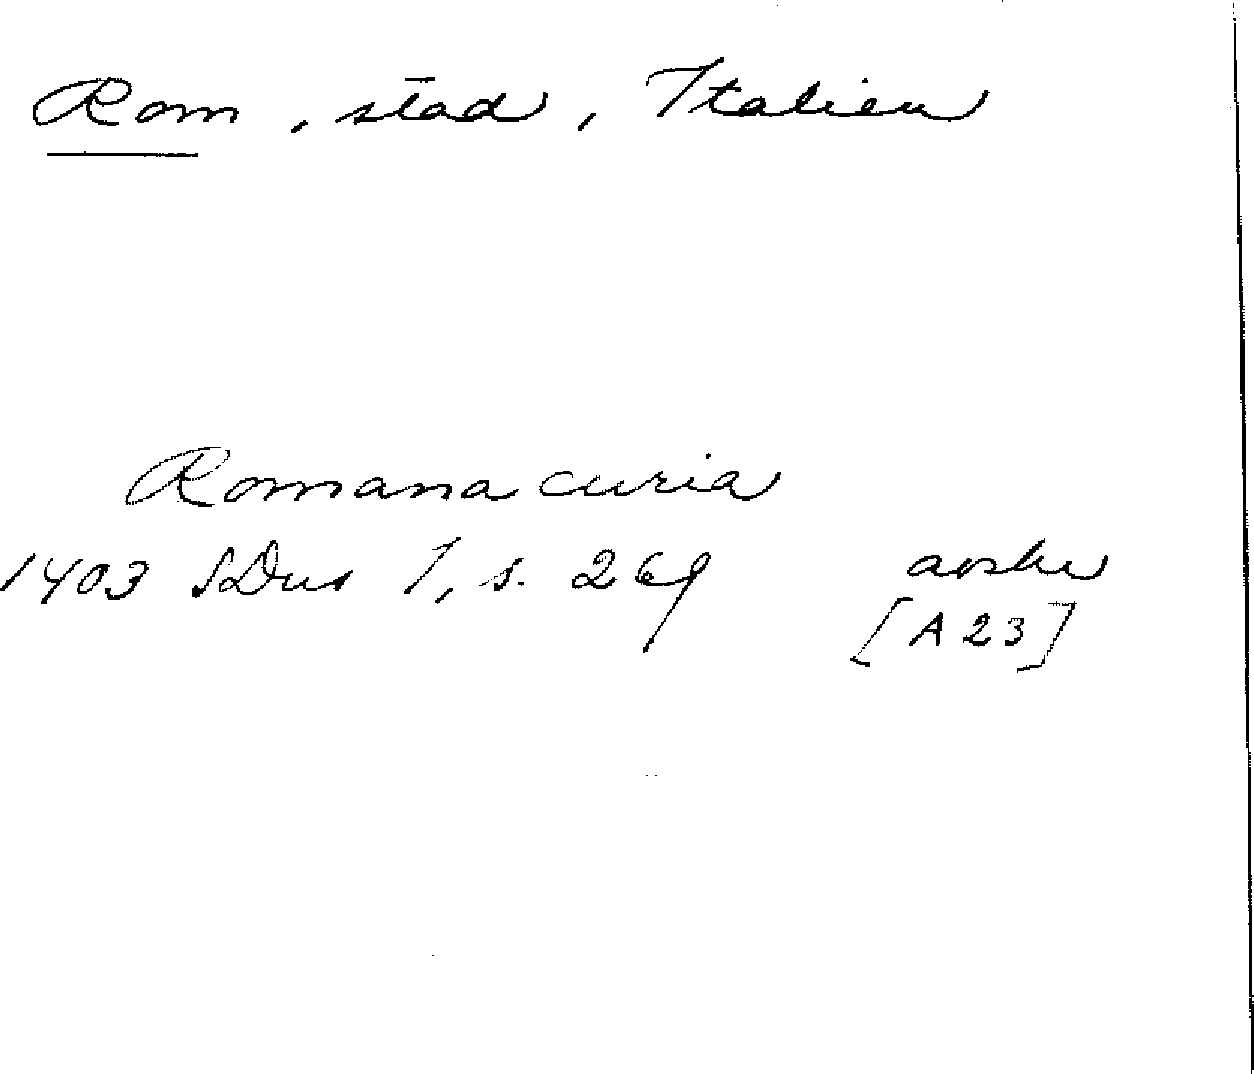 Rom, stad, Italien
Romana curia
1403 SDns 1, s. 269 avskr
[A 23]